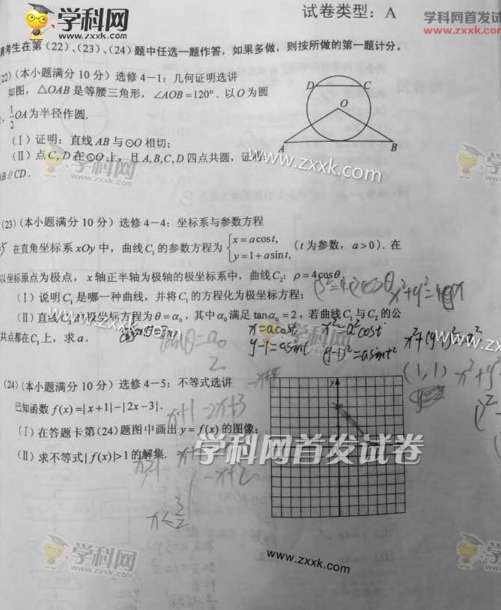 学科网
www.zxxk.com
试卷类型：A
学科网首发试
www.zxxk.
考生在第（22）、（23）、（24）题中任选一题作答，如果多做，则按所做的第一题计分。
22）（本小题满分 10 分）选修 4－1：几何证明选讲
如图，△OAB 是等腰三角形，∠AOB=120°. 以 O 为圆
，1/2 OA 为半径作圆.
（I）证明：直线 AB 与⊙O 相切；
（II）点 C, D 在⊙O 上，且 A,B,C,D 四点共圆，证明：
AB∥CD.
D C
O
A B
www.zxxk.com
（23）（本小题满分 10 分）选修 4－4：坐标系与参数方程
在直角坐标系 xOy 中，曲线 C₁ 的参数方程为 { x=a cos t, y=1+a sin t, （t 为参数，a>0）. 在
以坐标原点为极点，x 轴正半轴为极轴的极坐标系中，曲线 C₂: ρ=4cosθ.
（I）说明 C₁ 是哪一种曲线，并将 C₁ 的方程化为极坐标方程；
（II）直线 C₃ 的极坐标方程为 θ=α₀，其中 α₀ 满足 tan α₀=2，若曲线 C₁ 与 C₂ 的公
共点都在 C₃ 上，求 a.
x=acost
y-1=asint
(1,1)
（24）（本小题满分 10 分）选修 4－5：不等式选讲
已知函数 f(x)=|x+1|−|2x−3|.
（I）在答题卡第（24）题图中画出 y=f(x) 的图像；
（II）求不等式 |f(x)|>1 的解集.
学科网首发试卷
www.zxxk.com
学科网
www.zxxk.com